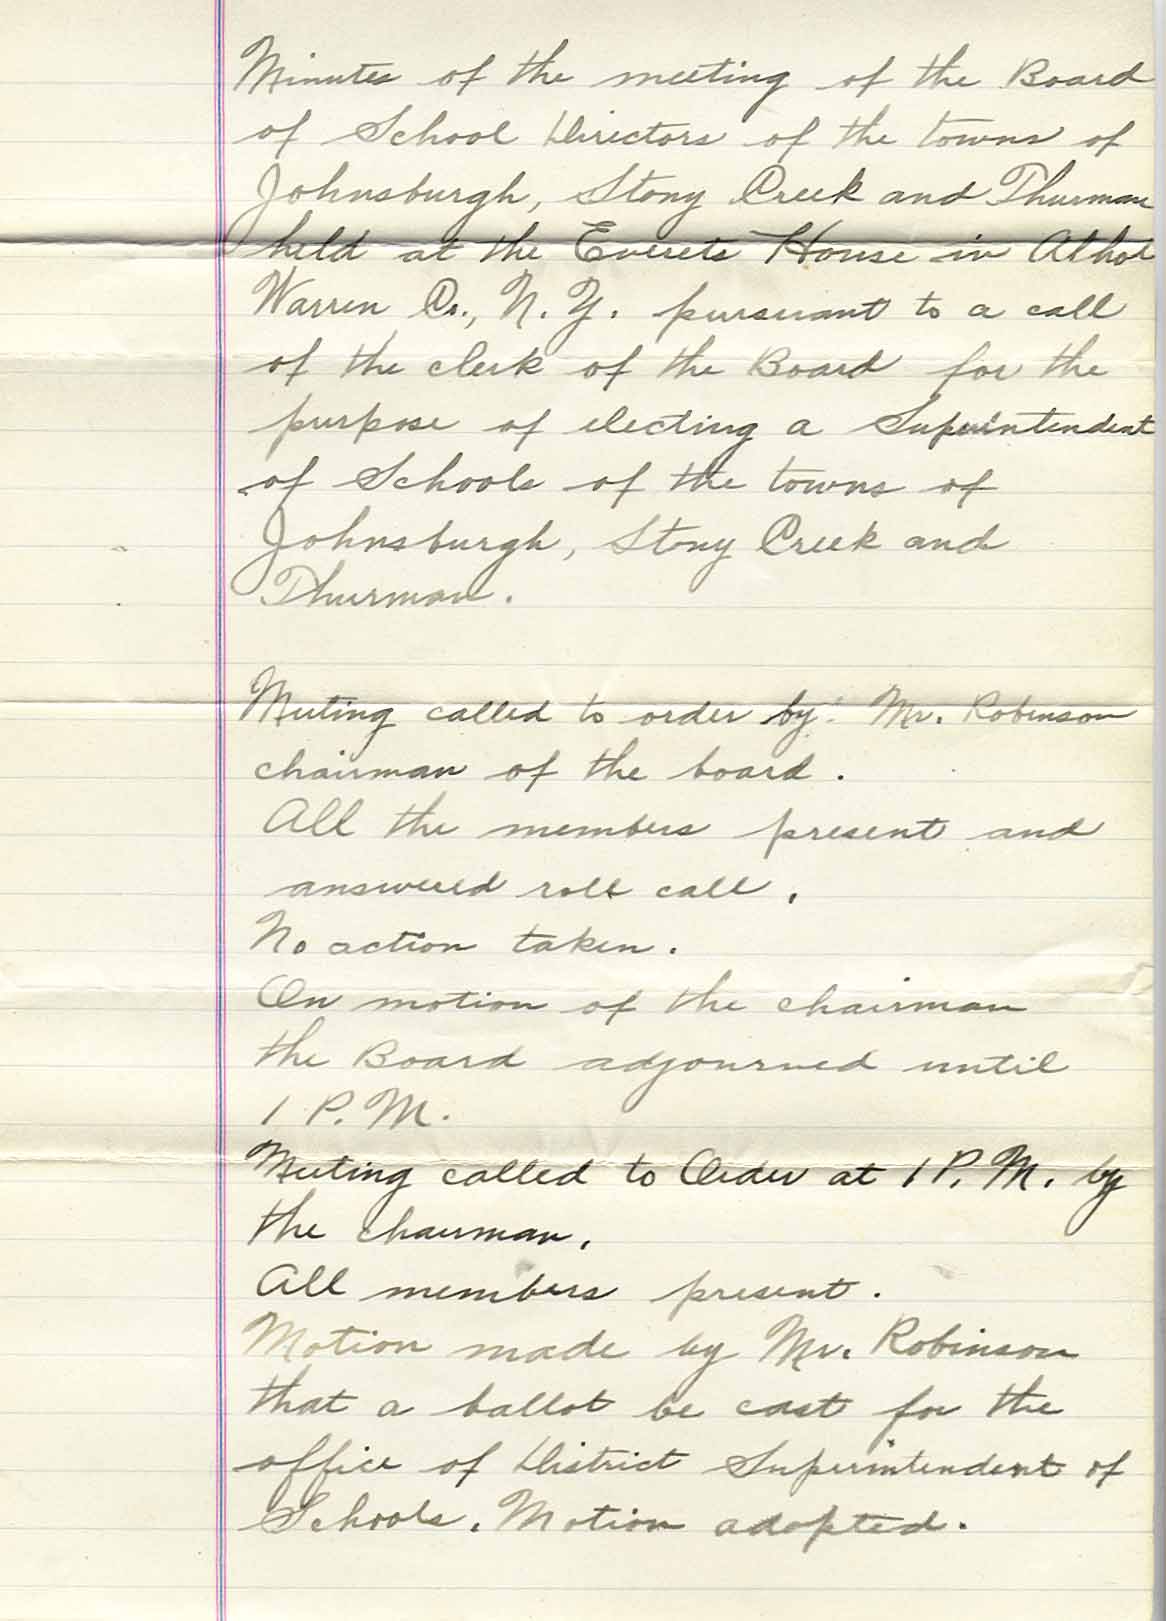 Minutes of the meeting of the Board
of School Directors of the towns of
Johnsburgh, Stony Creek and Thurman
held at the Everets House in Athol
Warren Co., N. Y. pursuant to a call
of the clerk of the Board for the
purpose of electing a Superintendent
of Schools of the towns of
Johnsburgh, Stony Creek and
Thurman.
Meeting called to order by Mr. Robinson
chairman of the board.
All the members present and
answered roll call.
No action taken.
On motion of the chairman
the Board adjourned until
1 P.M.
Meeting called to Order at 1 P.M. by
the chairman.
All members present.
Motion made by Mr. Robinson
that a ballot be cast for the
office of District Superintendent of
Schools. Motion adopted.